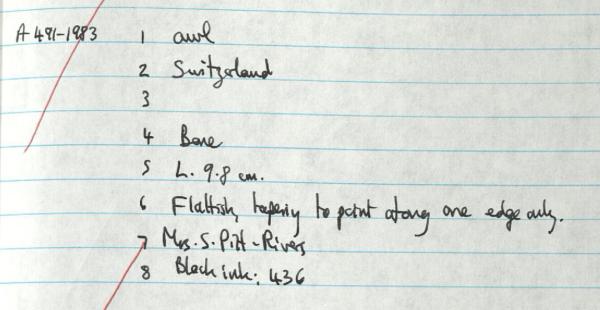 A 491-1983 1 awl
2 Switzerland
3
4 Bone
5 L. 9.8 cm.
6 Flattish, tapering to point along one edge only.
7 Mrs. S. Pitt-Rivers
8 Black ink: 436